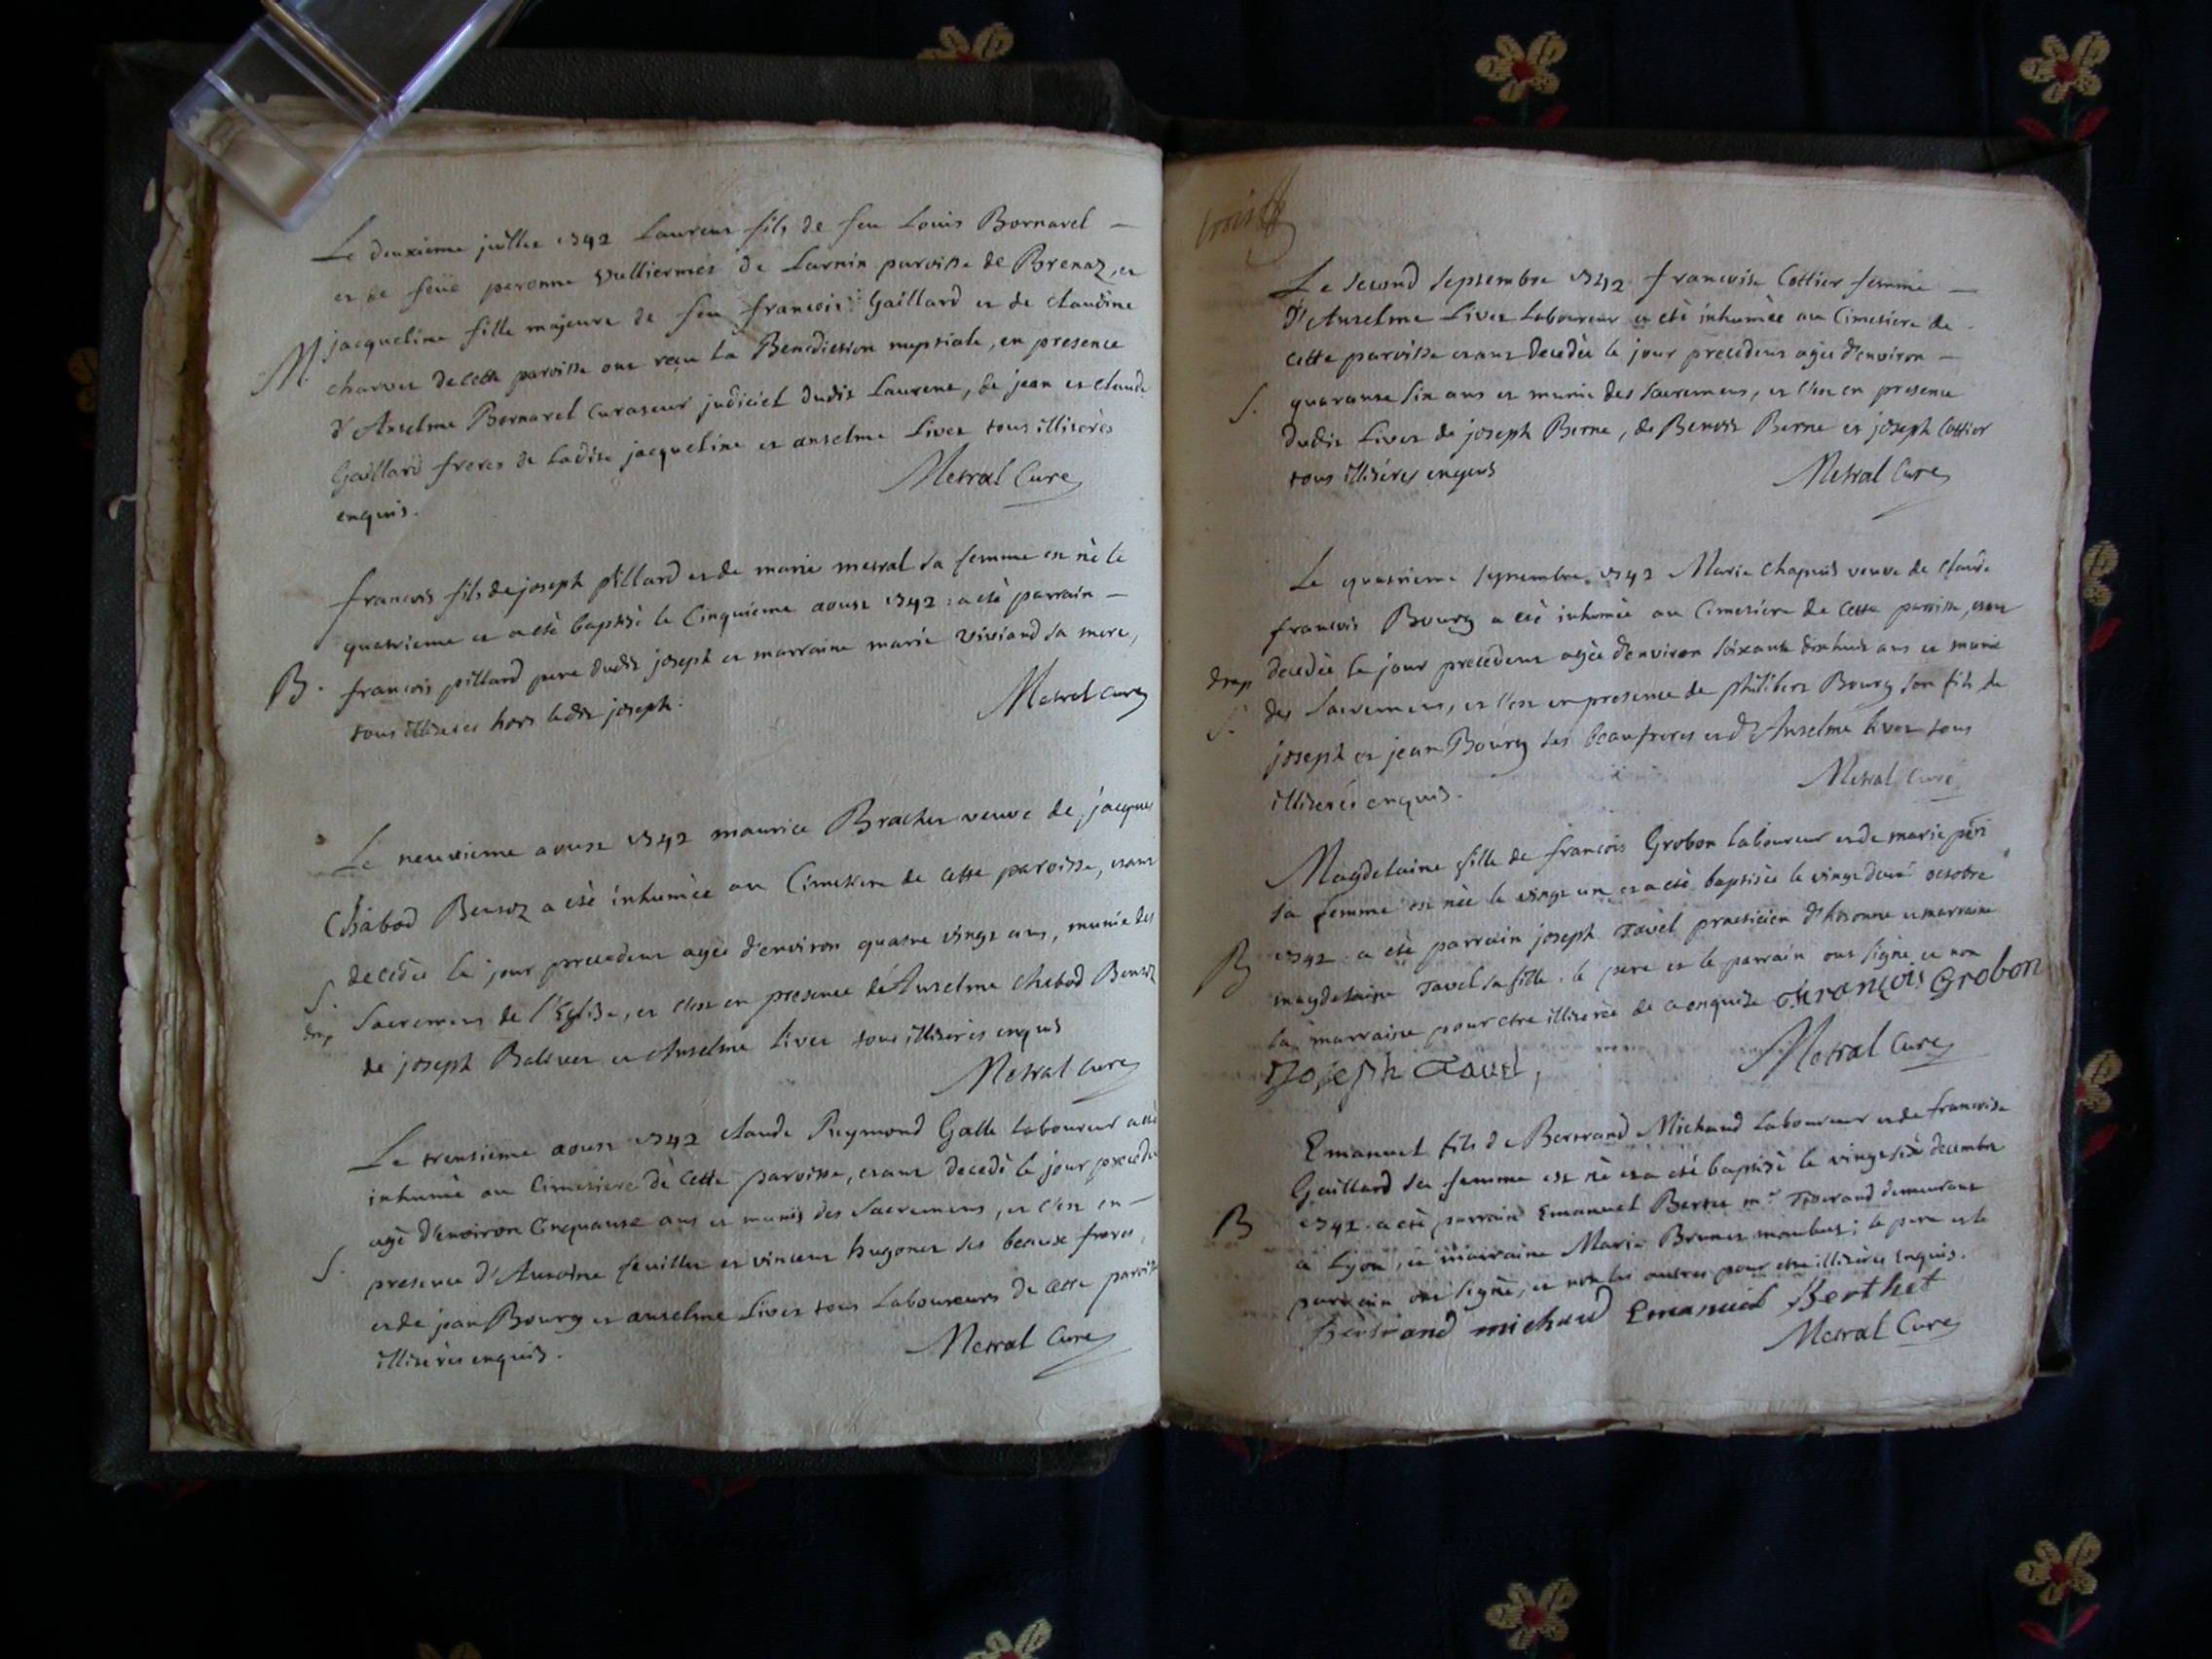 Le deuxieme juillet 1742 Laurent fils de feu Louis Bornarel
et de feüe peronne Vulliermet de Larnin paroisse de Brenaz, et
M. jacqueline fille majeure de feu francois Gaillard et de claudine
charvet de cette paroisse ont reçu la Benediction nuptiale, en presence
d'Anselme Bornarel Curateur judiciel dudit Laurent, de jean et claude
Gaillard freres de ladite jacqueline et anselme Livet tous illiterés
enquis.
Metral Curé
francois fils de joseph pillard et de marie metral sa femme est né le
quatrieme et a eté baptisé le Cinquieme aoust 1742 : a eté parrain
B. francois pillard pere dudit joseph et marraine marie Viviand sa mere,
tous illiterés hors ledit joseph.
Metral curé
Le neuvieme aoust 1742 maurice Brachet veuve de jacques
Chabod Bensoz a eté inhumée au Cimetiere de cette paroisse, etant
S. decedée le jour precedent agée d'environ quatre vingt ans, munie des
drap Sacremens de l'Eglise, et c'est en presence d'Anselme chabod Bensoz
de joseph Balivet et Anselme livet tous illiterés enquis
Metral curé
Le trentieme aoust 1742 claude Reymond Galle laboureur a eté
inhumé au Cimetiere de cette paroisse, etant decedé le jour precedent
agé d'environ Cinquante ans et munis des Sacremens, et c'est en
S. presence d'Antoine feuillet et vincent hugonet ses beaux freres,
et de jean Bourg et anselme Livet tous Laboureurs de cette paroisse
illiterés enquis.
Metral Curé
Le second septembre 1742 francoise Cottier femme
d'Anselme Livet Laboureur a eté inhumée au Cimetiere de
cette paroisse etant decedée le jour precedent agée d'environ
S. quarante six ans et munie des sacremens, et c'est en presence
dudit Livet de joseph Berne, de Benoit Berne et joseph Cottier
tous illiterés enquis
Metral Curé
Le quatrieme septembre 1742 Marie Chapuis veuve de claude
francois Bourg a eté inhumée au Cimetiere de cette paroisse, etant
drap decedée le jour precedent agée d'environ soixante dixhuit ans et munie
S. des Sacremens, et c'est en presence de philibert Bourg son fils, de
joseph et jean Bourg ses beaufreres et d'Anselme livet tous
illiterés enquis.
Metral Curé
Magdelaine fille de francois Grobon laboureur et de marie
sa femme est née le vingt un et a eté baptisée le vingt deux octobre
B 1742. a eté parrain joseph Tavel practicien d'hotonne et marraine
magdelaine Tavel sa fille. le pere et le parrain ont signé et non
la marraine pour etre illiterée de ce enquise françois Grobon
Joseph Tavel,
Metral Curé
Emanuel fils de Bertrand Michaud Laboureur et de francoise
Gaillard sa femme est né et a eté baptisé le vingtsix decembre
B 1742. a eté parrain Emanuel Bertet demeurant
a Lyon, et marraine Marie Brunet le pere et le
parrain ont signé, et non les autres pour etre illiterés enquis.
bertrand michaud Emanuel Berthet
Metral Curé